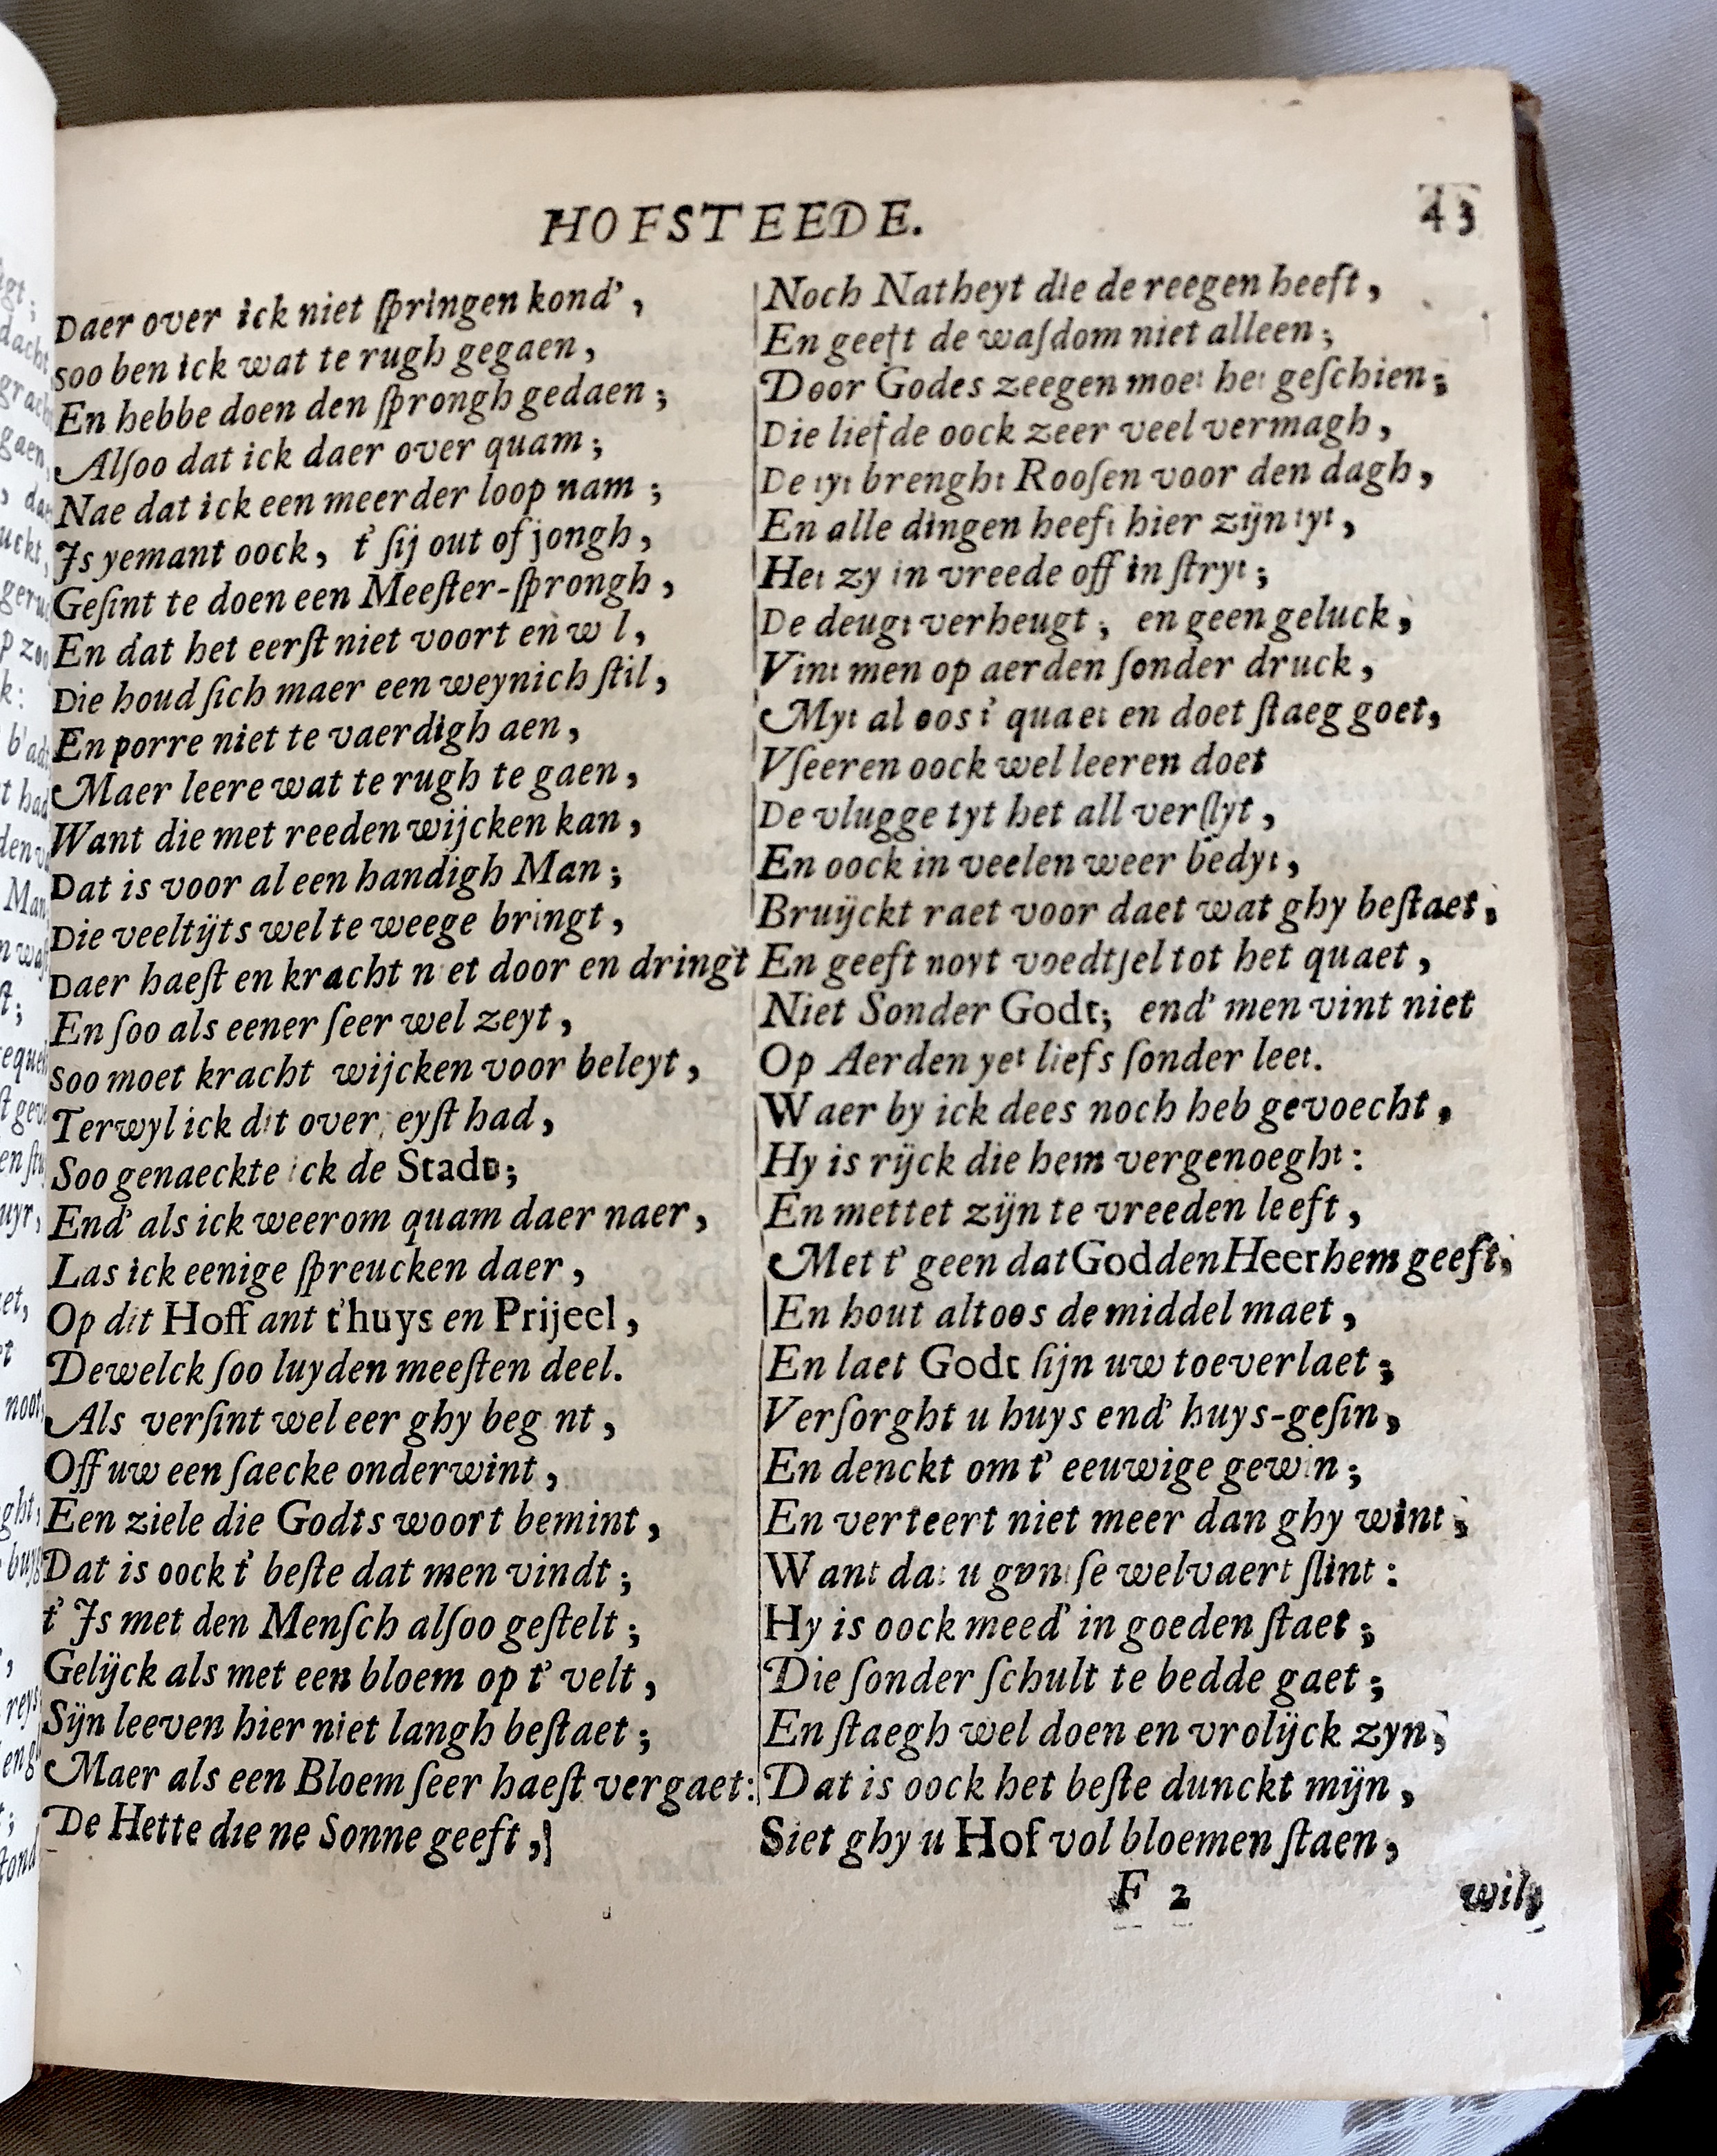 HOFSTEEDE.
43
Daer over ick niet ſpringen kond',
soo ben ick wat te rugh gegaen,
En hebbe doen den ſprongh gedaen;
Alſoo dat ick daer over quam;
Nae dat ick een meerder loop nam;
Is yemant oock, t' ſij out of jongh,
Geſint te doen een Meeſter-ſprongh,
En dat het eerſt niet voort en w l,
Die houd ſich maer een weynich ſtil,
En porre niet te vaerdigh aen,
Maer leere wat te rugh te gaen,
Want die met reeden wijcken kan,
Dat is voor al een handigh Man;
Die veeltijts wel te weege bringt,
Daer haeſt en kracht n et door en dringt
En ſoo als eener ſeer wel zeyt,
soo moet kracht wijcken voor beleyt,
Terwyl ick dit over eyſt had,
Soo genaeckte ick de Stadt;
End' als ick weerom quam daer naer,
Las ick eenige ſpreucken daer,
Op dit Hoff ant t'huys en Prijeel,
Dewelck ſoo luyden meeſten deel.
Als verſint wel eer ghy beg nt,
Off uw een ſaecke onderwint,
Een ziele die Godts woort bemint,
Dat is oock t' beſte dat men vindt;
t' Is met den Menſch alſoo geſtelt;
Gelijck als met een bloem op t' velt,
Sijn leeven hier niet langh beſtaet;
Maer als een Bloem ſeer haeſt vergaet:
De Hette die ne Sonne geeft,
Noch Natheyt die de reegen heeft,
En geeft de waſdom niet alleen;
Door Godes zeegen moet het geſchien;
Die liefde oock zeer veel vermagh,
De tyt brenght Rooſen voor den dagh,
En alle dingen heeft hier zijn tyt,
Het zy in vreede off in ſtryt;
De deugt verheugt, en geen geluck,
Vint men op aerden ſonder druck,
Myt al oos t' quaet en doet ſtaeg goet,
Vſeeren oock wel leeren doet
De vlugge tyt het all verſlyt,
En oock in veelen weer bedyt,
Bruijckt raet voor daet wat ghy beſtaet,
En geeft noyt voedtſel tot het quaet,
Niet Sonder Godt; end' men vint niet
Op Aerden yet liefs ſonder leet.
Waer by ick dees noch heb gevoecht,
Hy is rijck die hem vergenoeght:
En mettet zijn te vreeden leeft,
Met t' geen dat God den Heer hem geeft,
En hout altoos de middel maet,
En laet Godt ſijn uw toeverlaet;
Verſorght u huys end' huys-geſin,
En denckt om t' eeuwige gewin;
En verteert niet meer dan ghy wint,
Want dat u gonſe welvaert ſlint:
Hy is oock meed' in goeden ſtaet;
Die ſonder ſchult te bedde gaet;
En ſtaegh wel doen en vrolijck zyn,
Dat is oock het beſte dunckt mijn,
Siet ghy u Hof vol bloemen ſtaen,
F 2
wilt